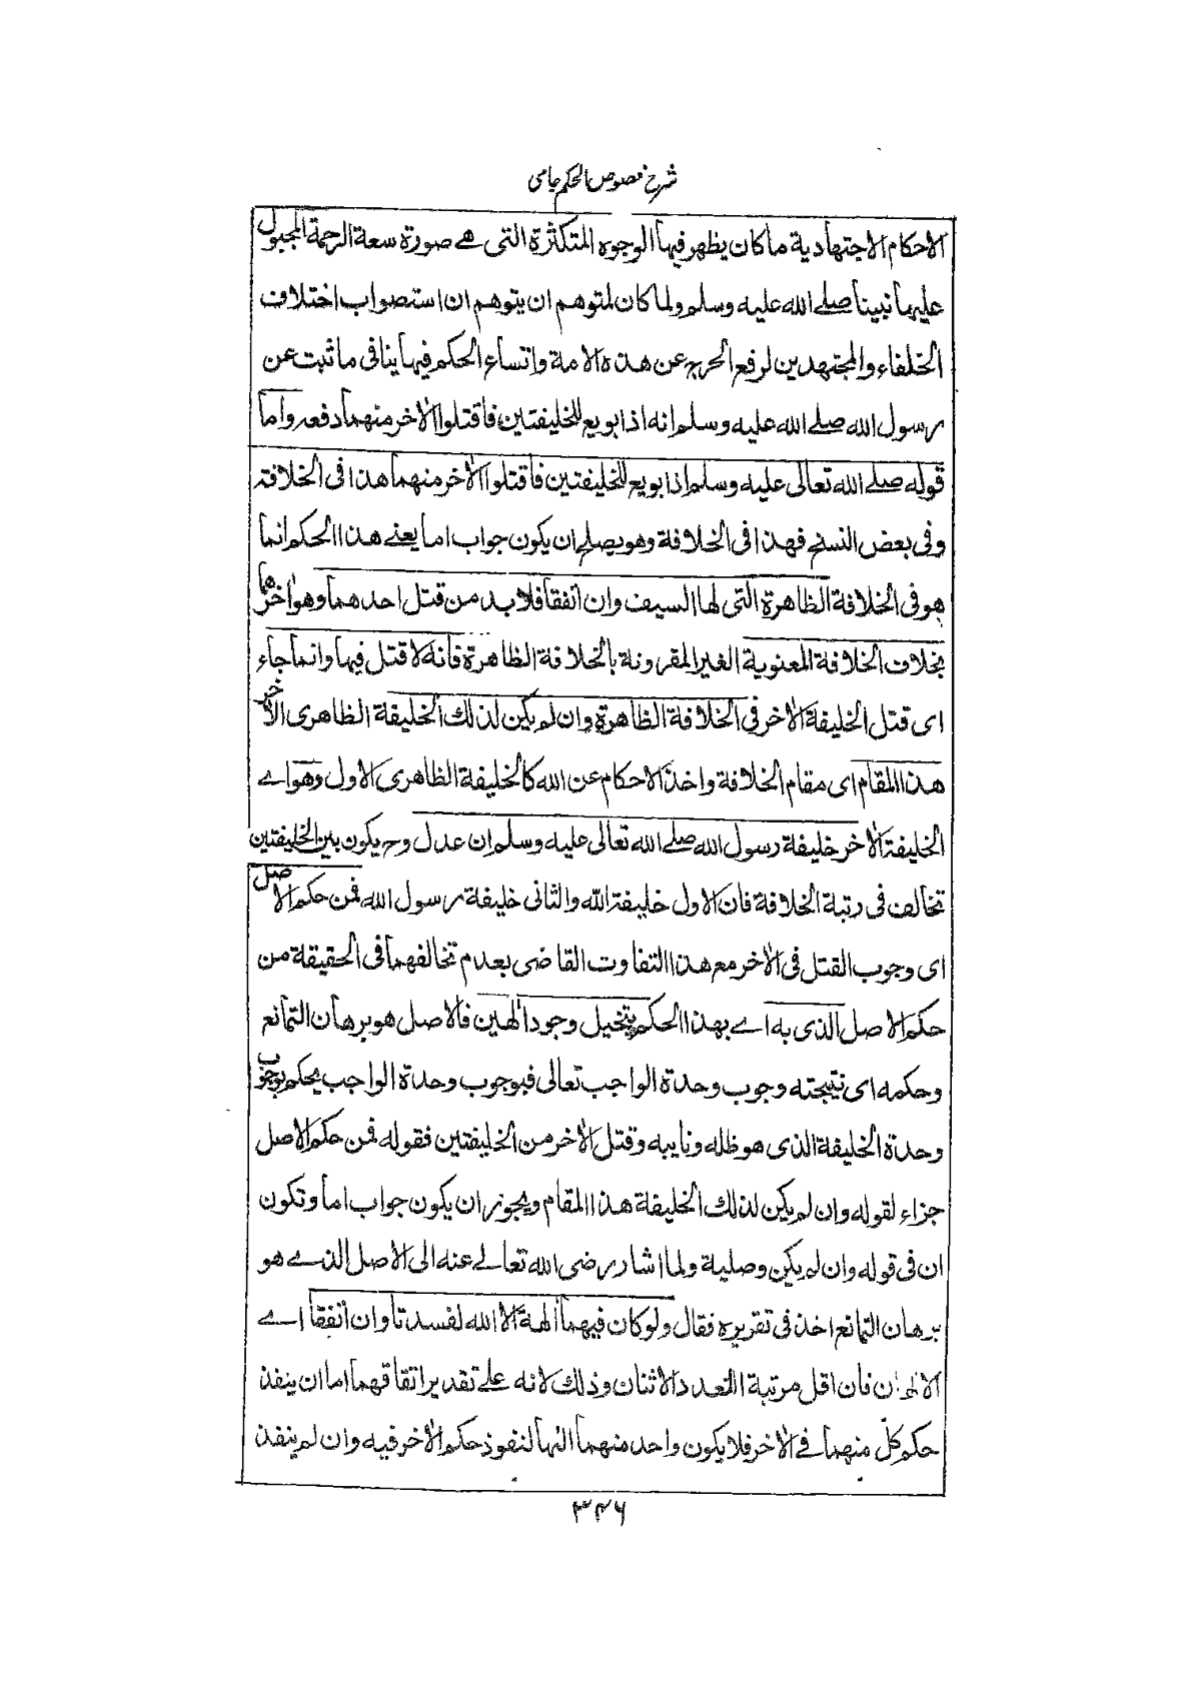 شرح فصوص الحكم جامی
الاحكام الاجتهادية ما كان يظهر فيها الوجوه المتكثرة التى هے صورة سعة الرحمة المجبول
عليها نبينا صلے الله عليه وسلم ولما كان لمتوهم ان يتوهم ان استصواب اختلاف
الخلفاء والمجتهدين لرفع الحرج عن هذه الامة واتساع الحكم فيها ينافى ما ثبت عن
رسول الله صلے الله عليه وسلم انه اذا بويع للخليفتين فاقتلوا الاٰخر منهما دفعه واما
قوله صلے الله تعالى عليه وسلم اذا بويع للخليفتين فاقتلوا الاٰخر منهما هذا فى الخلافة
وفى بعض النسخ فهذا فى الخلافة وهو يصلح ان يكون جواب اما يعنے هذا الحكم انما
هو فى الخلافة الظاهرة التى لها السيف وان اتفقا فلا بد من قتل احدهما وهو اٰخرهما
بخلاف الخلافة المعنوية الغير المقرونة بالخلافة الظاهرة فانه لا قتل فيها وانما جاء
اى قتل الخليفة الاٰخر فى الخلافة الظاهرة وان لم يكن لذلك الخليفة الظاهرى الاٰخر
هذا المقام اى مقام الخلافة واخذ الاحكام عن الله كالخليفة الظاهرى الاول وهو اے
الخليفة الاٰخر خليفة رسول الله صلے الله تعالى عليه وسلم ان عدل وح يكون بين الخليفتين
تخالف فى رتبة الخلافة فان الاول خليفة الله والثانى خليفة رسول الله فمن حكم الاصل
اى وجوب القتل فى الاٰخر مع هذا التفاوت القاضى بعدم تخالفهما فى الحقيقة من
حكم الاصل الذى به اے بهذا الحكم يتخيل وجود الٰهين فالاصل هو برهان التمانع
وحكمه اى نتيجته وجوب وحدة الواجب تعالى فبوجوب وحدة الواجب يحكم بوجوب
وحدة الخليفة الذى هو ظله ونايبه وقتل الاٰخر من الخليفتين فقوله فمن حكم الاصل
جزاء لقوله وان لم يكن لذلك الخليفة هذا المقام ويجوز ان يكون جواب اما وتكون
ان فى قوله وان لم يكن وصلية ولما اشار رضى الله تعالے عنه الى الاصل الذے هو
برهان التمانع اخذ فى تقريره فقال ولو كان فيهما اٰلهة الا الله لفسدتا وان اتفقا اے
الالٰهان فان اقل مرتبة التعدد الاثنان وذلك لانه علے تقدير اتفاقهما اما ان ينفذ
حكم كلّ منهما فے الاٰخر فلا يكون واحد منهما الٰها لنفوذ حكم الاٰخر فيه وان لم ينفذ
۳۴۶